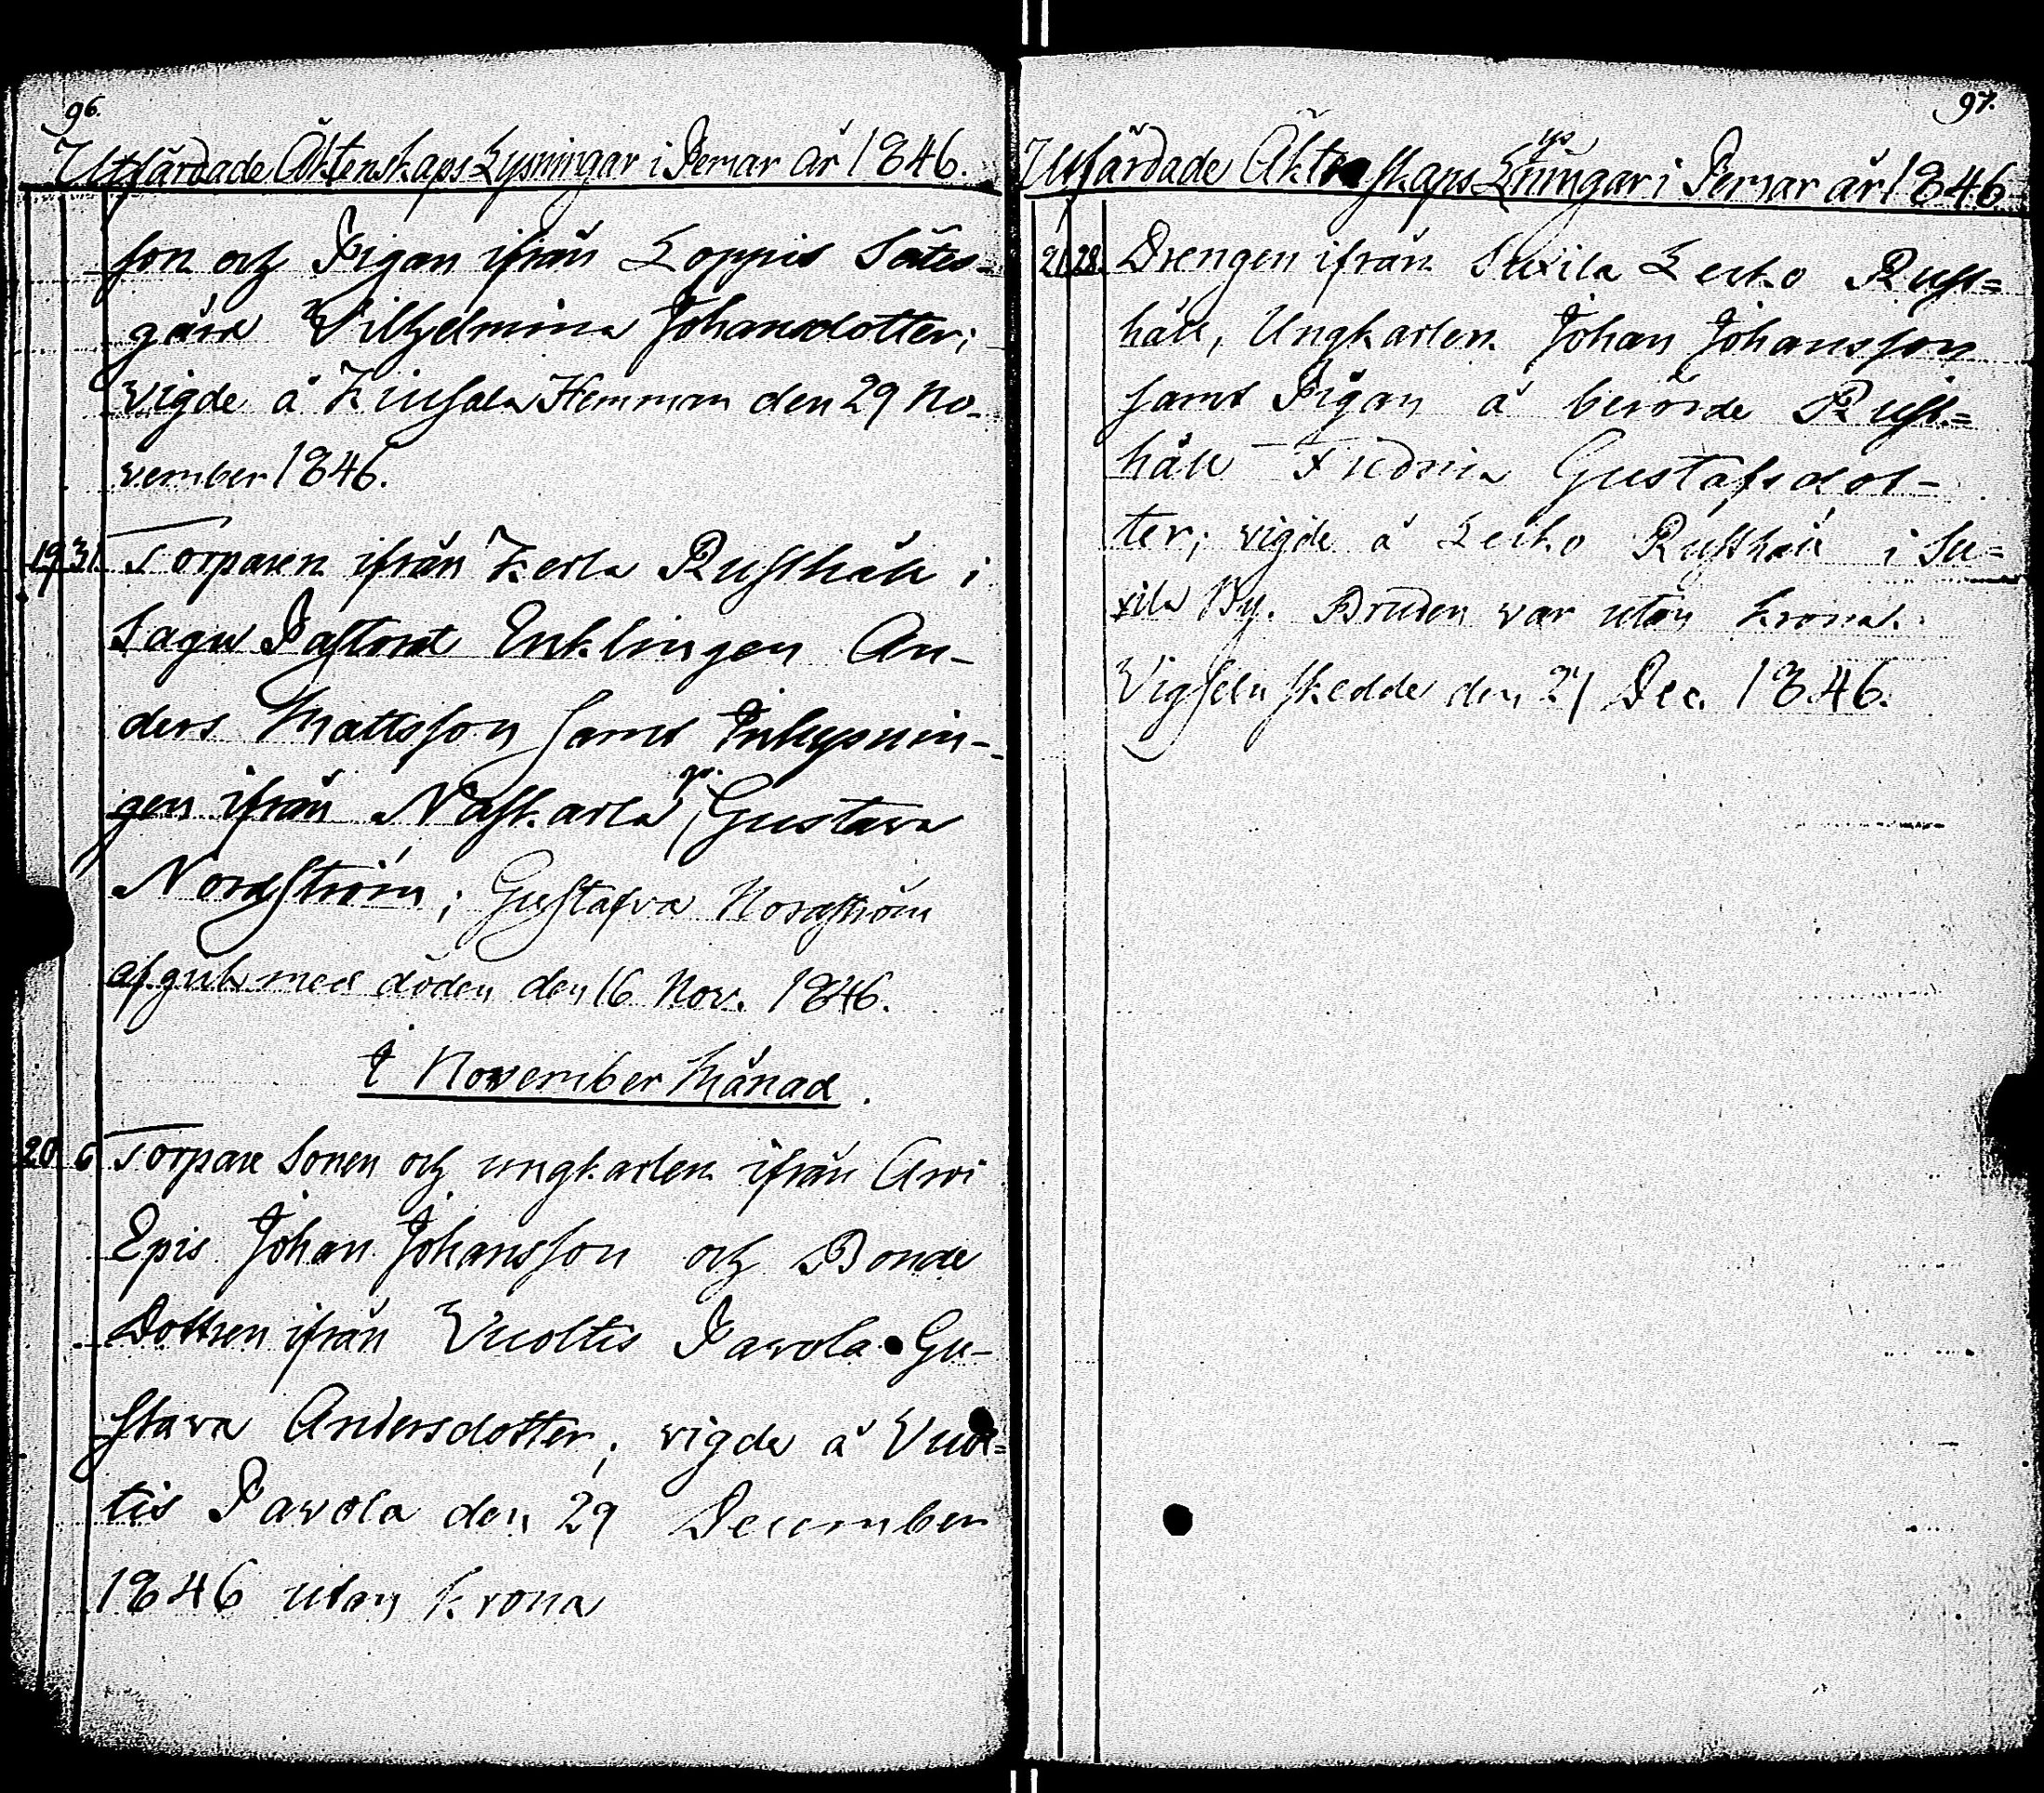 96.
Utfärdade Äktenskaps Lysningar i Pemar år 1846.
son och Pigan ifrån Loppis Sätes-
gård Wilhelmina Johansdotter;
vigde å Hemman den 29 No-
vember 1846.
19 31 Torparen ifrån Kerla Rusthåll i
Sagu Pastorat Enklingen An-
ders Mattsson samt Inhysnin-
gen ifrån Naskarla, Gustava
Nordström; Gustafva Nordström
afgick med döden den 16 Nov. 1846.
i November Månad.
20 6 Torpare Sonen och ungkarlen ifrån Arvi
Epis Johan Johansson och Bonde
Dottren ifrån Vuoltis Pavola Gu-
stava Andersdotter; vigde å Vuol-
tis Pavola den 29 December
1846 utan krona
97.
Utfärdade Äktenskaps Lysningar i Pemar år 1846
21 28. Drengen ifrån Suxila Rust=
håll, Ungkarlen Johan Johansson
samt Pigan å berörde Rust=
håll Fredrica Gustafsdot-
ter; vigde å Rusthåll i Su=
xila By. Bruden var utan krona.
Vigseln skedde den 27 Dec. 1846.